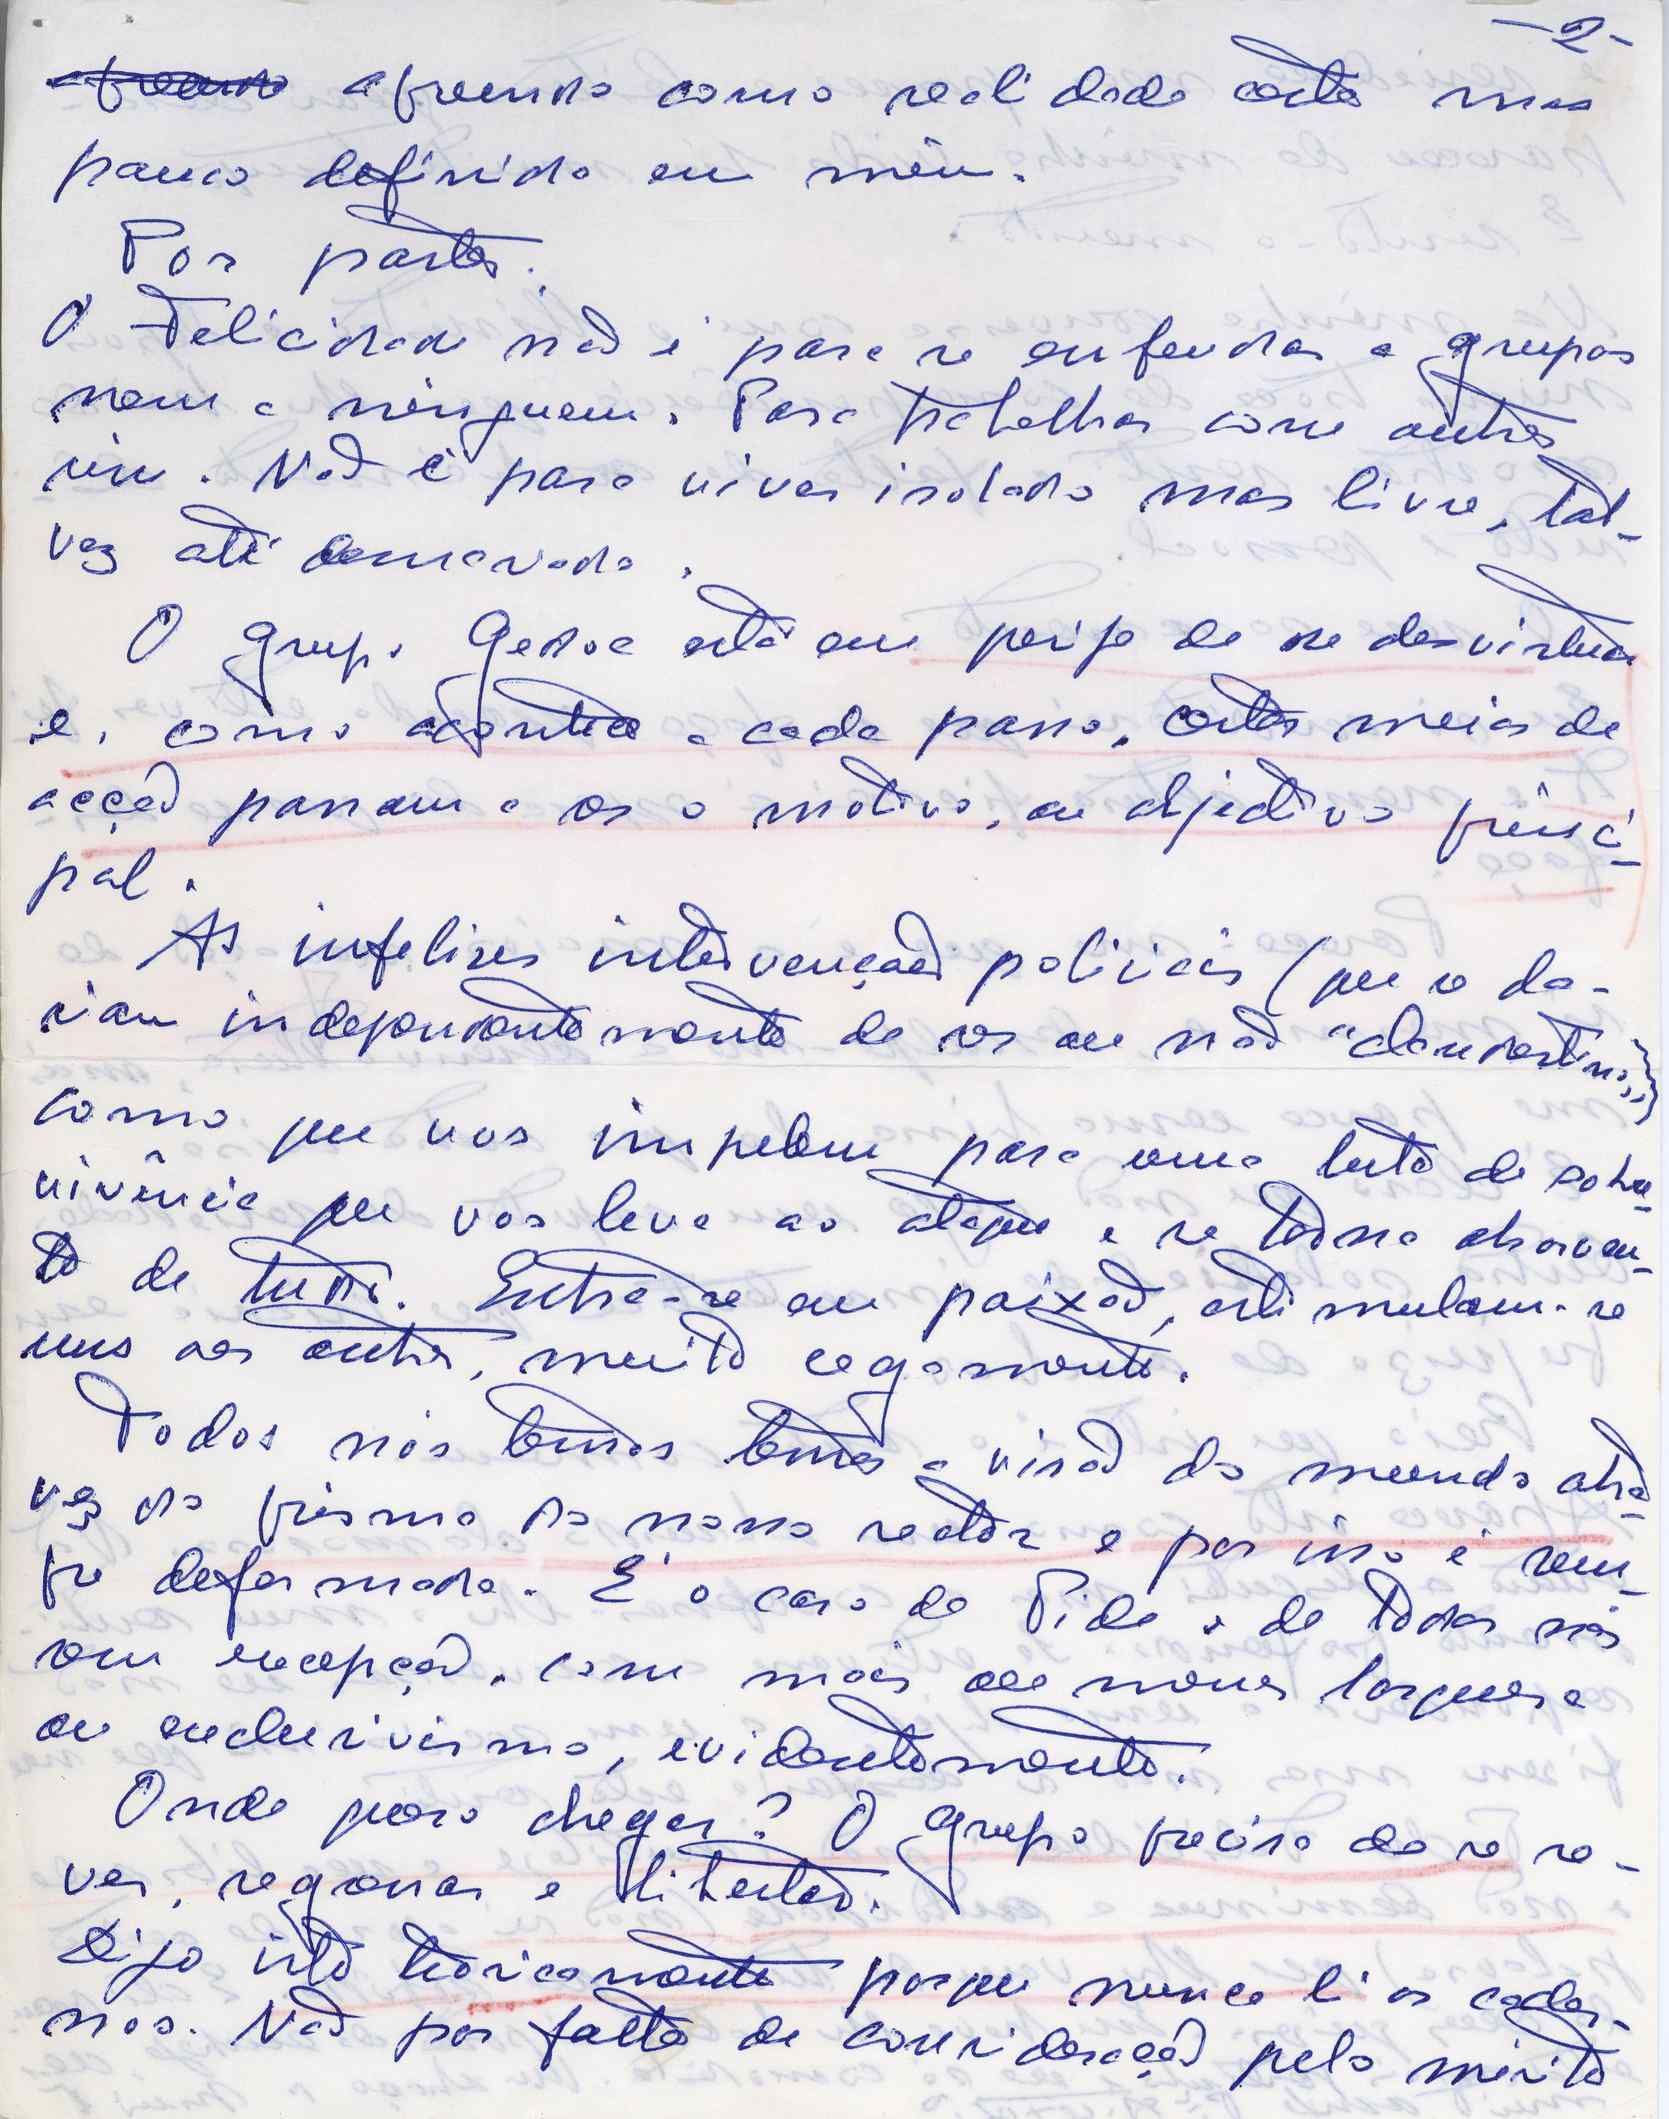 -2-
apreendo como realidade certa mas
pouco definida em mim.
Por partes.
O Felicidade não é para se enfeudar a grupos
nem a ninguem. Para trabalhar com outros
sim. Não é para viver isolado mas livre, tal-
vez até demasiado.
O grupo Gedoc está em perigo de se desvirtuar
e, como acontece a cada passo, certos meios de
acção passam a ser o motivo, ou objectivo princi-
pal.
As infelizes intervenções policiais (que se da-
riam independentemente de ser ou não "clandestinos")
como que vos impelem para uma luta de sobre-
vivência que vos leva ao ataque e se torna absorven-
te de tudo. Entra-se em paixão, estimulam-se
uns aos outros, muito cegamente.
Todos nós temos temos a visão do mundo atra-
vez do prisma do nosso sector e por isso é sem-
pre deformada. É o caso da Pide e de todos nós
sem excepção, com mais ou menos largueza
ou exclusivismo, evidentemente.
Onde quero chegar? O grupo precisa de se re-
ver, regressar e libertar.
Digo isto teoricamente porque nunca li os cader-
nos. Não por falta de consideração pelo mérito